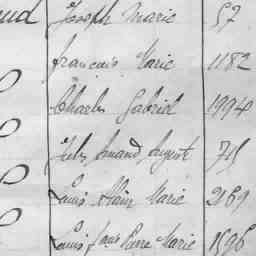 ud Joseph Marie 57
François Marie 1182
Charles Gabriel 1994
Jules Amand August 715
Louis Alain Marie 2169
Louis fois Pierre Marie 1596